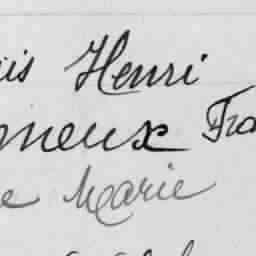 is Henri
neux Fra
e Marie